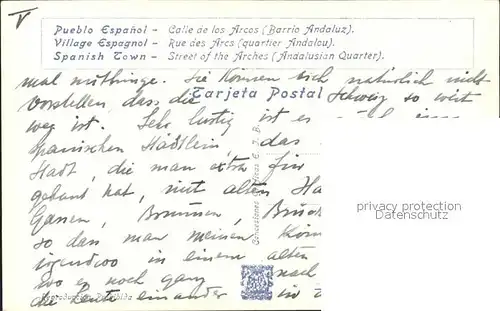 V
Pueblo Español - Calle de los Arcos (Barrio Andaluz).
Village Espagnol - Rue des Arcs (quartier Andalou).
Spanish Town - Street of the Arches (Andalusian Quarter).
Tarjeta Postal
mal mitbringe. Sie können sich natürlich nicht
vorstellen dass die Schweiz so weit
weg ist. Sehr lustig ist es
spanischen Städtlein, das
Stadt, die man extra für
gebaut hat, mit alten
Gassen, Brunnen,
so dan man meinen
irgendwo in einem alten
wo es noch ganz nach
die Leute einander in
privacy protection
Datenschutz